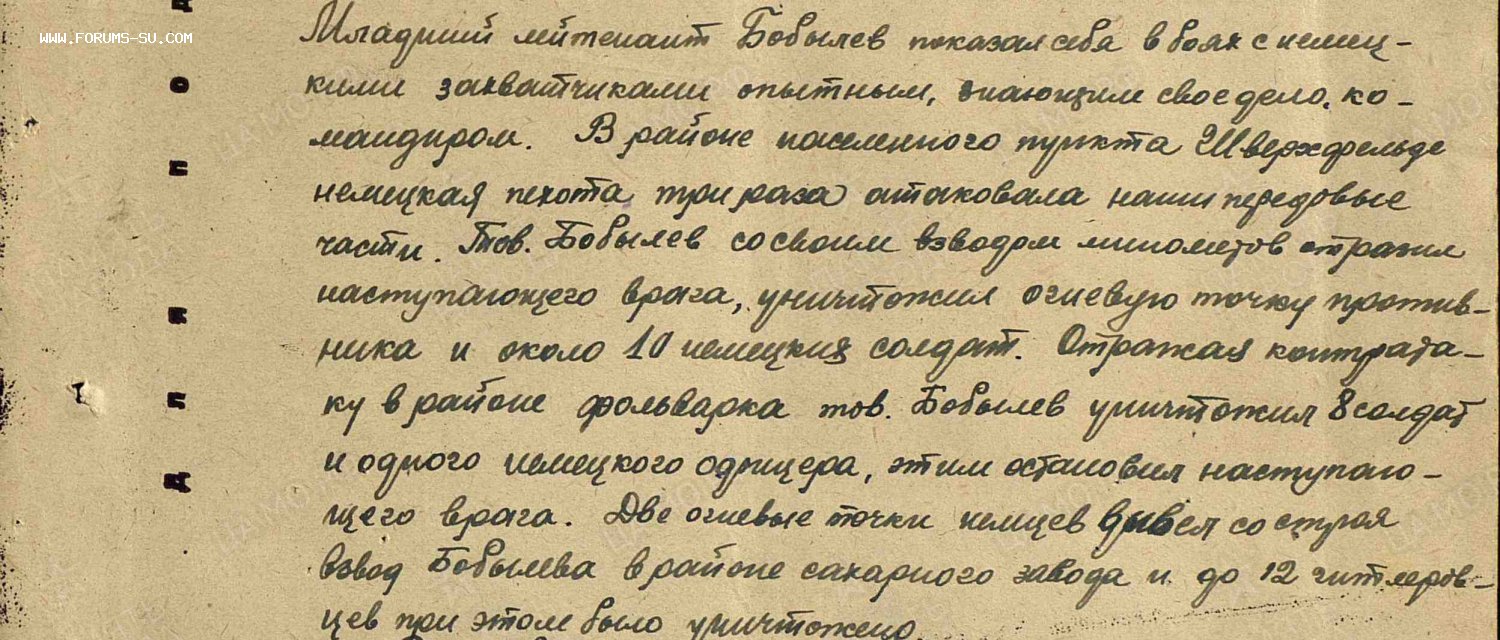 WWW.FORUMS-SU.COM
Младший лейтенант Бобылев показал себя в боях с немец-
кими захватчиками опытным, знающим свое дело, ко-
мандиром. В районе населенного пункта Шверхфельде
немецкая пехота три раза атаковала наши передовые
части. Тов. Бобылев со своим взводом минометов отразил
наступающего врага, уничтожил огневую точку против-
ника и около 10 немецких солдат. Отражая контрата-
ку в районе фольварка тов. Бобылев уничтожил 8 солдат
и одного немецкого офицера, этим остановил наступаю-
щего врага. Две огневые точки немцев вывел со строя
взвод Бобылева в районе сахарного завода и до 12 гитлеров-
цев при этом было уничтожено.